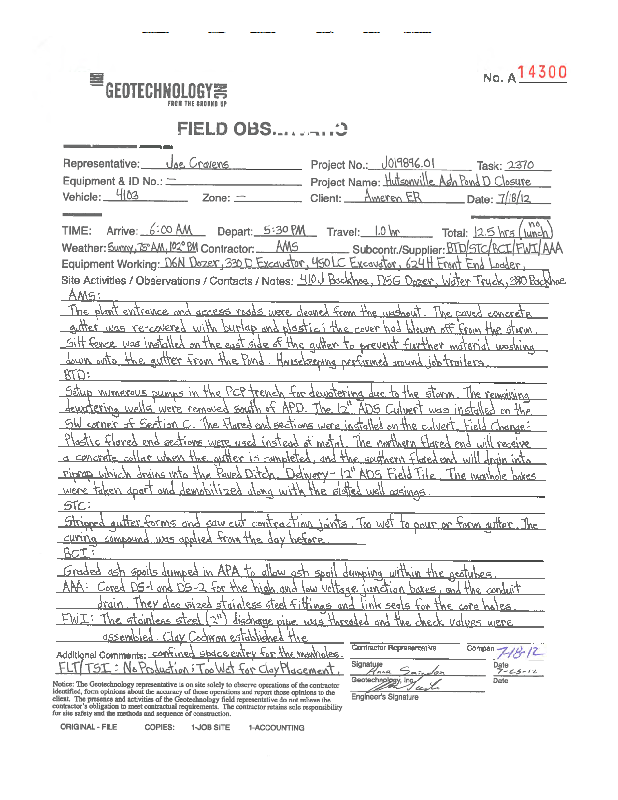 No. A 14300
GEOTECHNOLOGY
FROM THE GROUND UP
FIELD OBS
Representative: Joe Cravens Project No.: J019896.01 Task: 2370
Equipment & ID No.: — Project Name: Hutsonville Ash Pond D Closure
Vehicle: 4103 Zone: — Client: Ameren ER Date: 7/18/12
TIME: Arrive: 6:00 AM Depart: 5:30 PM Travel: 1.0 hr Total: 12.5 hrs (no lunch)
Weather: Sunny, 75° AM, 102° PM Contractor: AMS Subcontr./Supplier: BTD/STC/BCI/FWI/AAA
Equipment Working: D6N Dozer, 330 D Excavator, 450 LC Excavator, 624H Front End Loader,
Site Activities / Observations / Contacts / Notes: 410J Backhoe, D5G Dozer, Water Truck, 380 Backhoe
AMS:
The plant entrance and access roads were cleaned from the washout. The paved concrete
gutter was re-covered with burlap and plastic; the cover had bleum off from the storm.
Silt fence was installed on the east side of the gutter to prevent further material washing
down onto the gutter from the Pond. Housekeeping performed around job trailers.
BTD:
Setup numerous pumps in the PCP trench for dewatering due to the storm. The remaining
dewatering wells were removed south of APD. The 12" ADS Culvert was installed on the
SW corner of Section C. The flared end sections were installed on the culvert. Field Change:
Plastic flared end sections were used instead of metal. The northern flared end will receive
a concrete collar when the gutter is completed, and the southern flared end will drain into
riprap which drains into the Paved Ditch. Delivery - 12" ADS Field Tile. The manhole boxes
were taken apart and demobilized along with the slotted well casings.
STC:
Stripped gutter forms and saw cut contraction joints. Too wet to pour or form gutter. The
curing compound was applied from the day before.
BCI:
Graded ash spoils dumped in APA to allow ash spoil dumping within the geotubes.
AAA: Cored DS-1 and DS-2 for the high and low voltage junction boxes, and the conduit
drain. They also sized stainless steel fittings and link seals for the core holes.
FWI: The stainless steel (2") discharge pipe was threaded and the check valves were
assembled. Clay Cochron established the
Additional Comments: confined space entry for the manholes.
FLT/TSI: No Production; Too Wet for Clay Placement.
Contractor Representative Compan 7-18-12
Signature Date
Geotechnology, Inc. Date
Engineer's Signature
Notice: The Geotechnology representative is on site solely to observe operations of the contractor
identified, form opinions about the accuracy of those operations and report those opinions to the
client. The presence and activities of the Geotechnology field representative do not relieve the
contractor's obligation to meet contractual requirements. The contractor retains sole responsibility
for site safety and the methods and sequence of construction.
ORIGINAL - FILE COPIES: 1-JOB SITE 1-ACCOUNTING